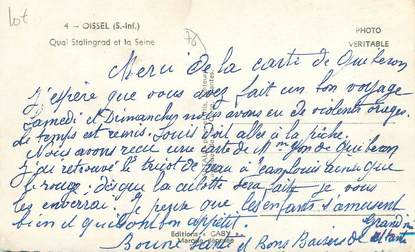 lot
4 - OISSEL (S.-Inf.)
Quai Stalingrad et la Seine
76
PHOTO
VERITABLE
Merci de la carte de Quiberon
J'espère que vous avez fait un bon voyage
Samedi et Dimanche nous avons eu de violents orages.
Le temps est remis. Louis doit aller à la pêche.
Nous avons reçu une carte de Mme de Quiberon
J'ai retrouvé le tricot de peau à Jeanlouis ainsi que
le rouge; dès que la culotte sera faite je vous
les enverrai. Je pense que les enfants s'amusent
bien et qu'ils ont bon appétit.
Editions GABY
Bonne et Bons Baisers de
Grand